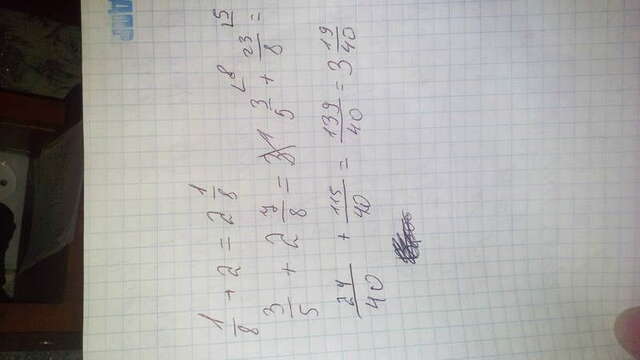 1/8 + 2 = 2 1/8
3/5 + 2 7/8 = 3/5 + 23/8 =
24/40 + 115/40 = 139/40 = 3 19/40